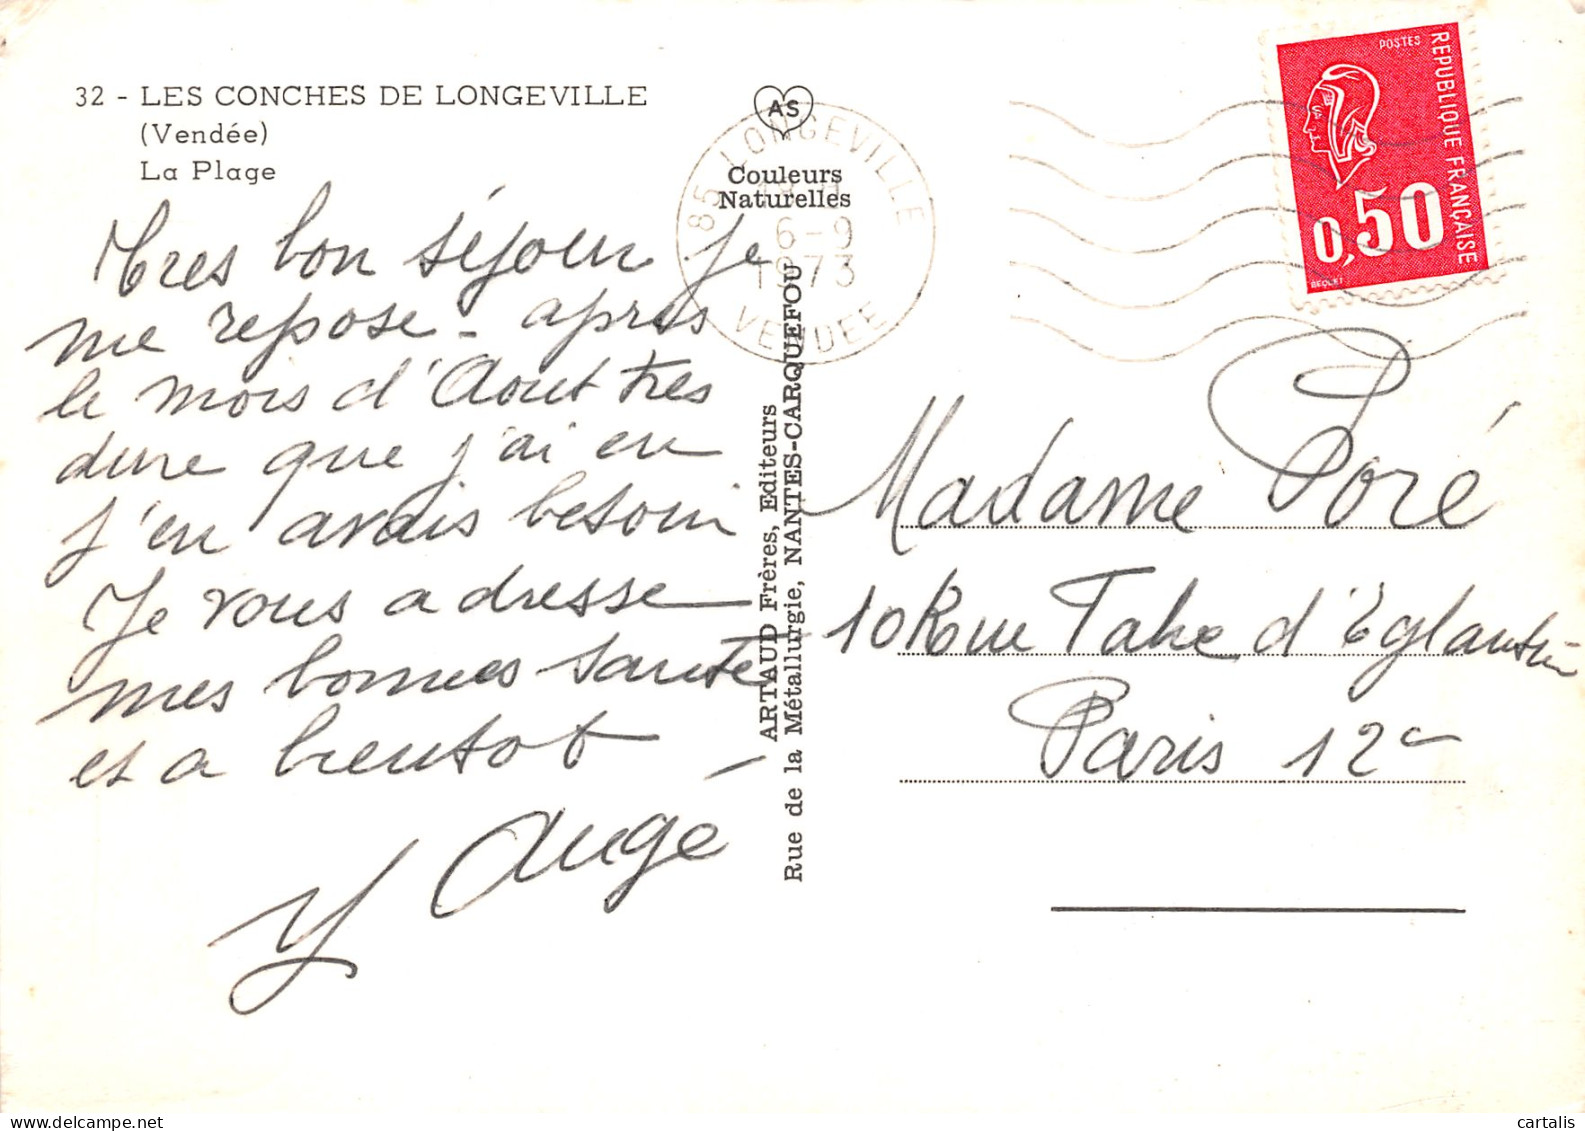 32 - LES CONCHES DE LONGEVILLE
(Vendée)
La Plage
Tres bon séjour je
me repose - après
le mois d'Aout tres
dure que j'ai eu
j'en avais besoin
Je vous adresse
mes bonnes santé
et a bientot -
Y Augé
AS
Couleurs
Naturelles
85 LONGEVILLE
18 H
6-9
1973
VENDEE
ARTAUD Frères, Editeurs
Rue de la Métallurgie, NANTES-CARQUEFOU
POSTES
REPUBLIQUE FRANÇAISE
0,50
BEQUET
Madame Poré
10 Rue Take d'Eglantin
Paris 12e
cartalis.com